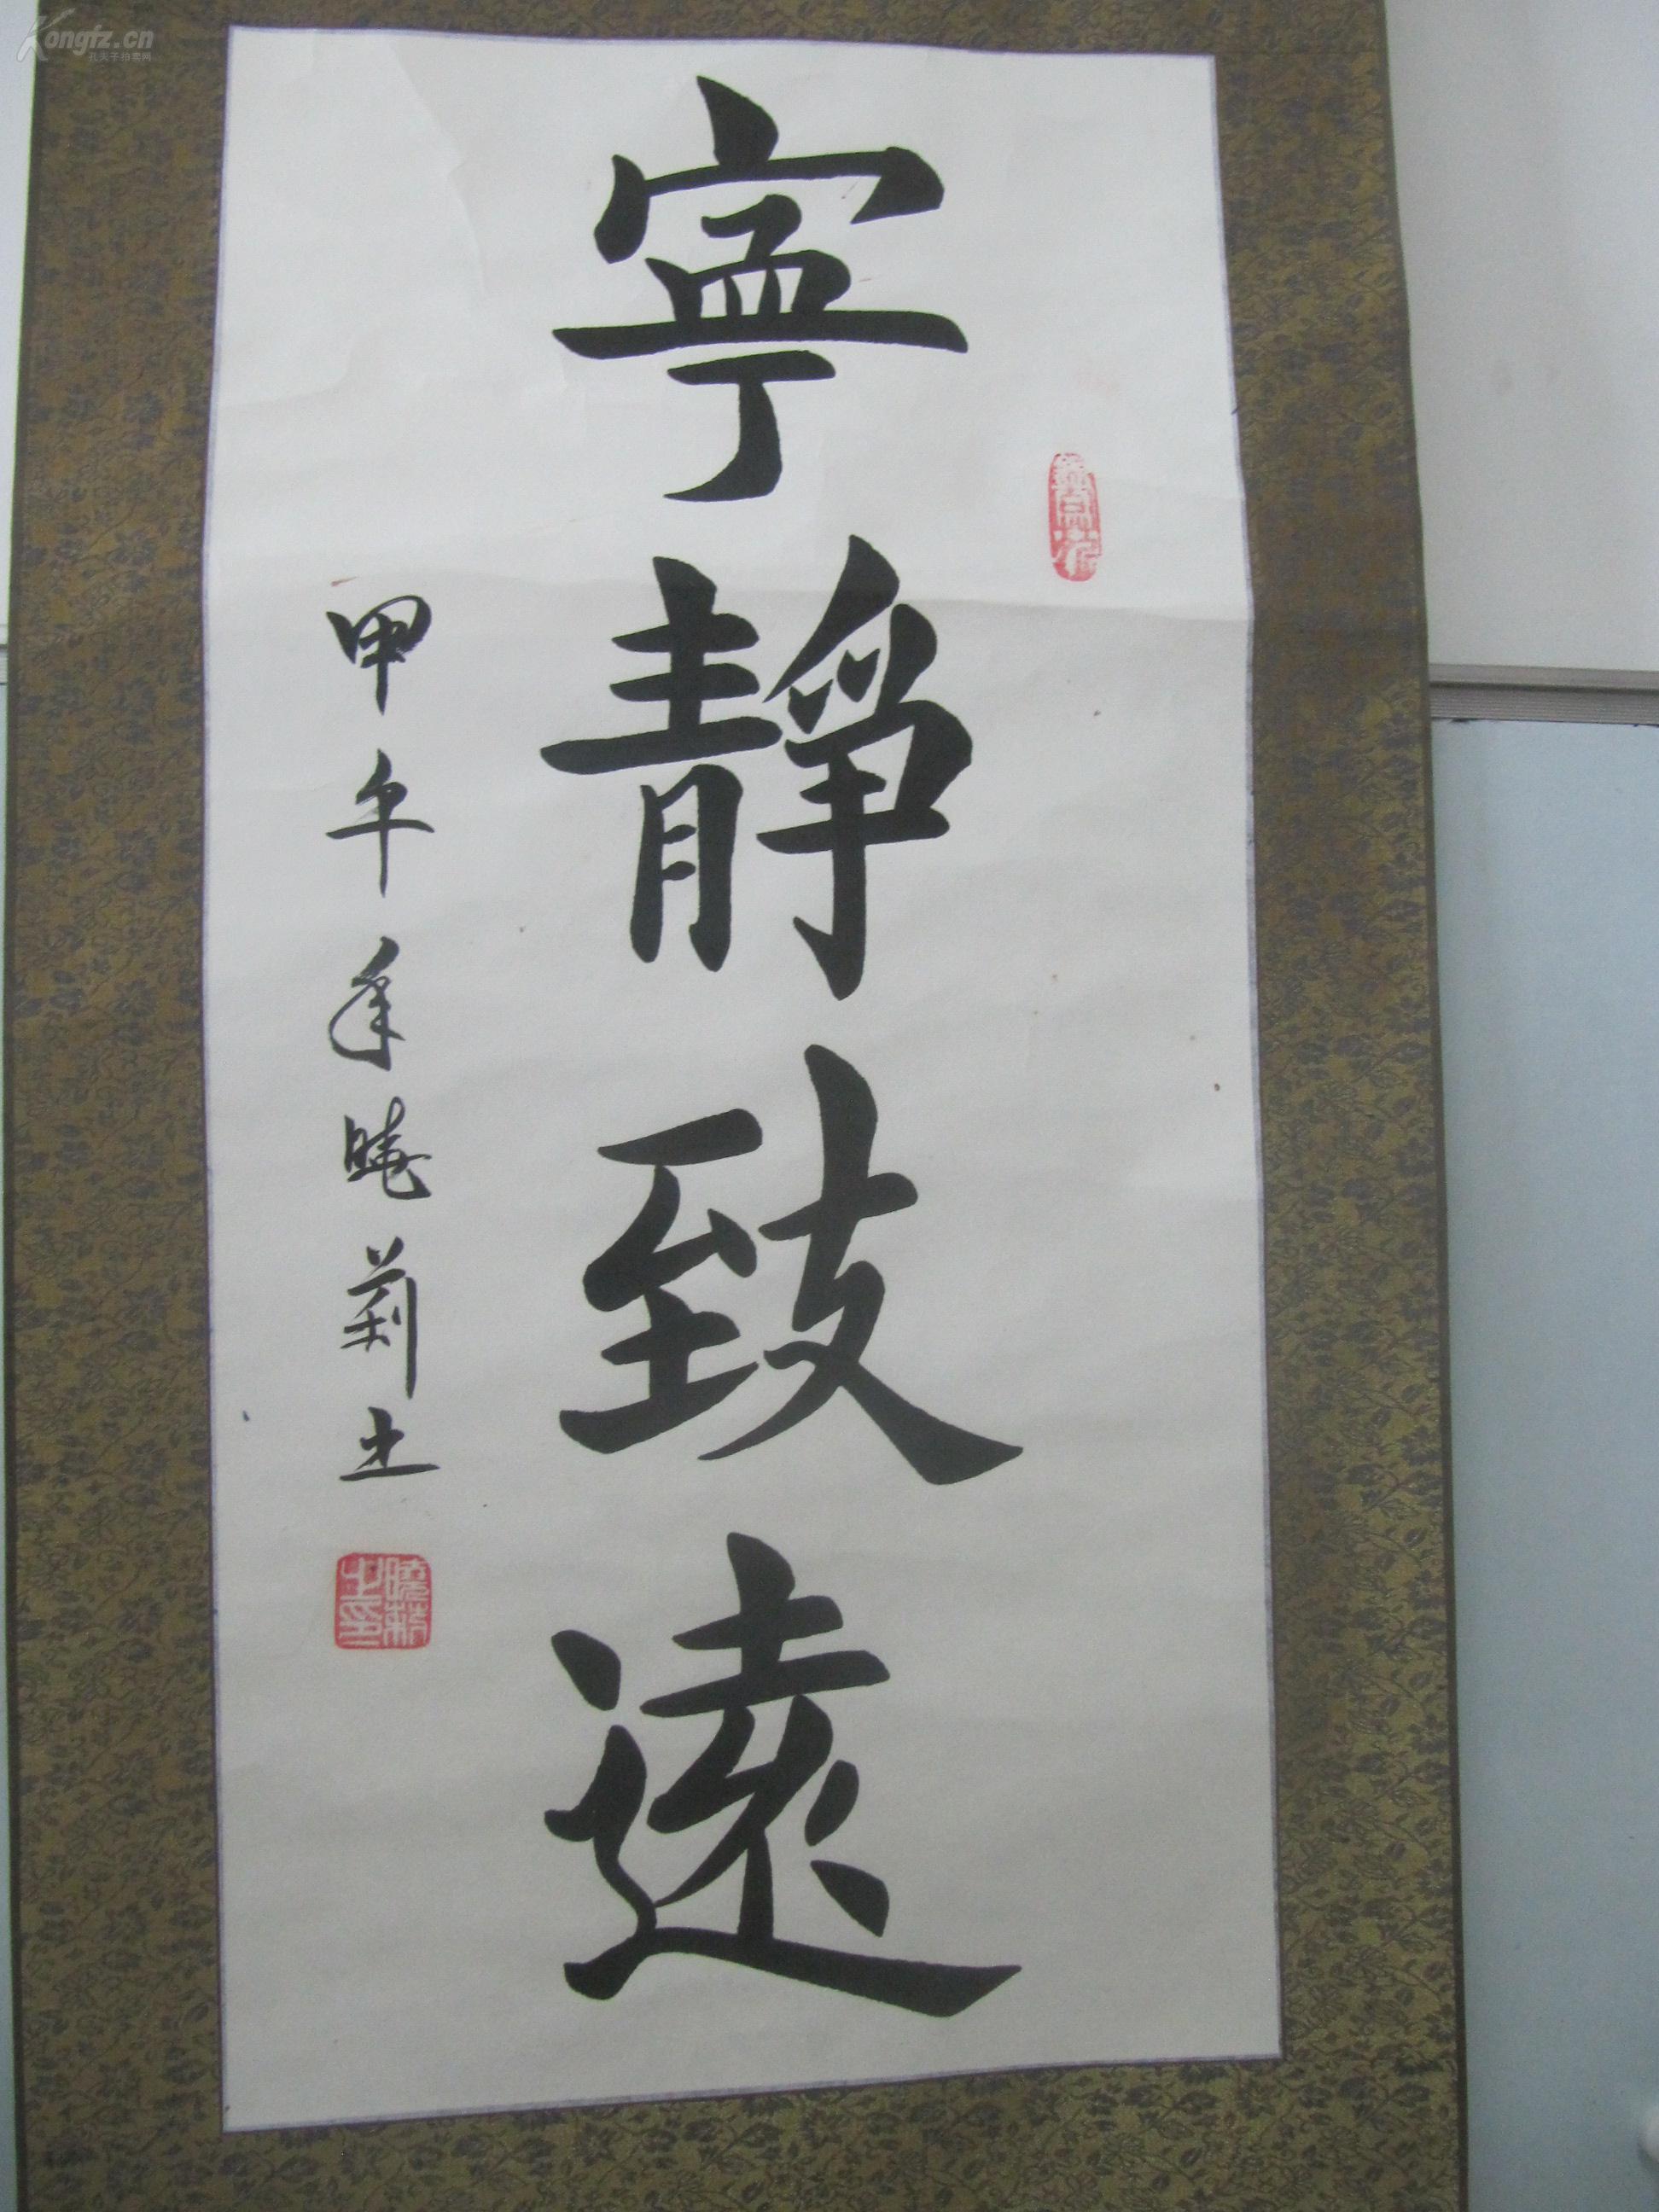 寧靜致遠
甲午年曉莉書
Kongfz.cn
孔夫子拍卖网